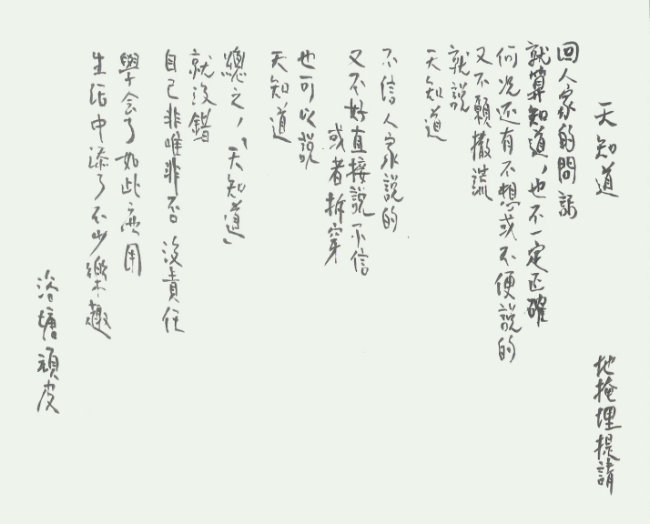 天知道
地掩埋提請
回人家的問話
就算知道，也不一定正確
何况还有不想或不便說的
又不願撒謊
就說
天知道
不信人家說的
又不好直接說不信
或者拆穿
也可以說
天知道
總之，「天知道」
就沒錯
自己非唯非否 沒責任
學会了如此應用
生活中添了不少樂趣
浴塘頑皮